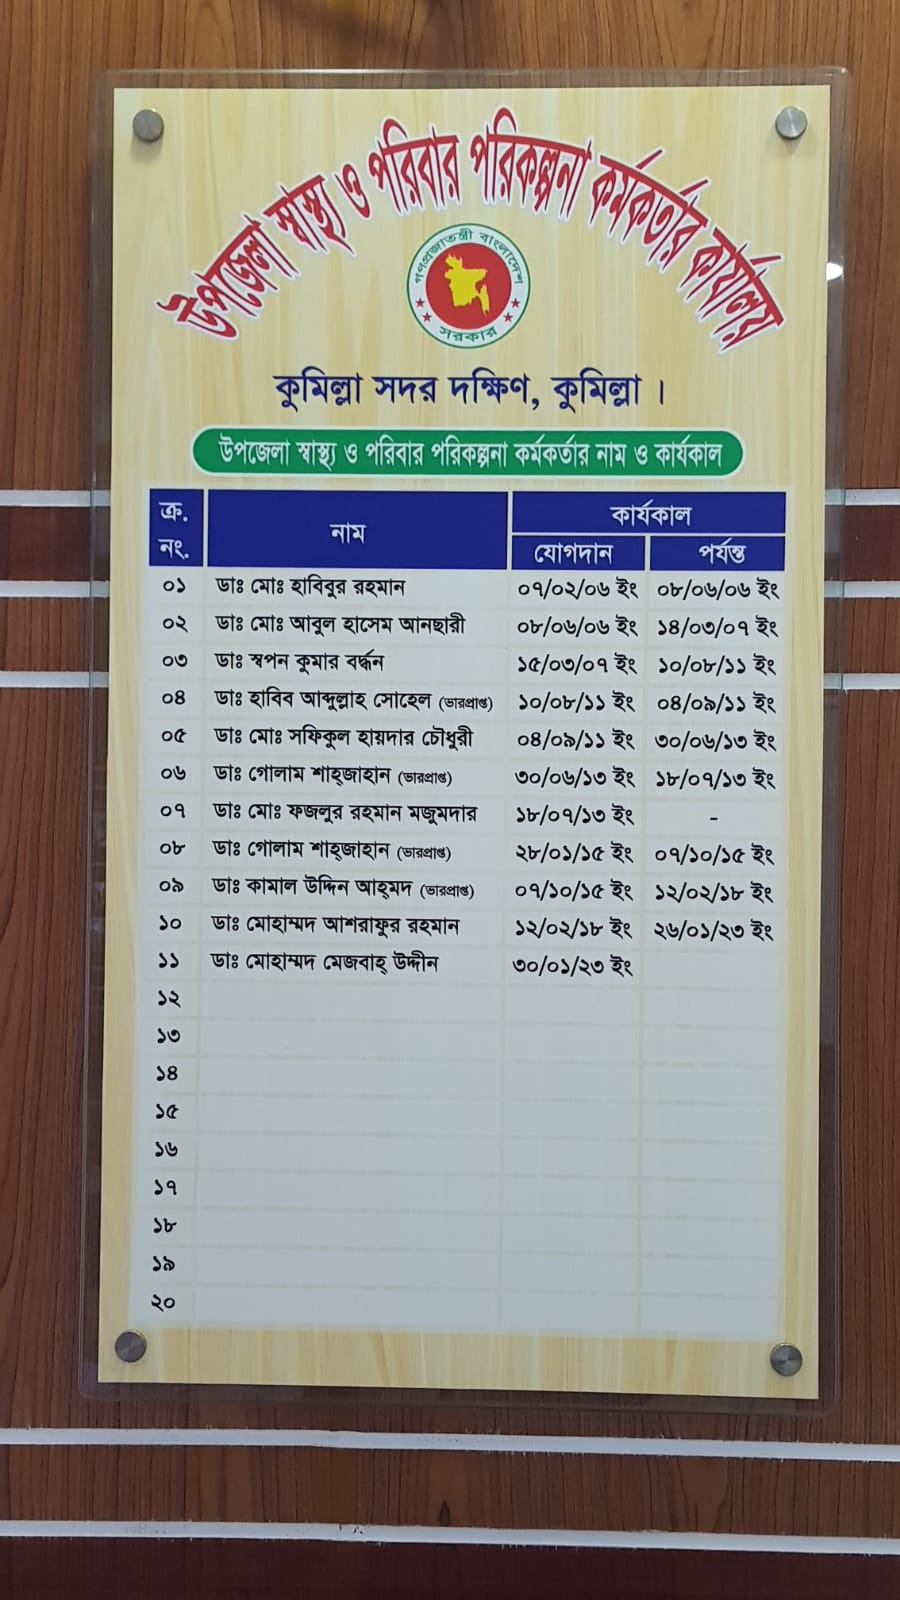 উপজেলা স্বাস্থ্য ও পরিবার পরিকল্পনা কর্মকর্তার কার্যালয়
গণপ্রজাতন্ত্রী বাংলাদেশ
সরকার
কুমিল্লা সদর দক্ষিণ, কুমিল্লা ।
উপজেলা স্বাস্থ্য ও পরিবার পরিকল্পনা কর্মকর্তার নাম ও কার্যকাল
ক্র. নং. নাম কার্যকাল
যোগদান পর্যন্ত
০১ ডাঃ মোঃ হাবিবুর রহমান ০৭/০২/০৬ ইং ০৮/০৬/০৬ ইং
০২ ডাঃ মোঃ আবুল হাসেম আনছারী ০৮/০৬/০৬ ইং ১৪/০৩/০৭ ইং
০৩ ডাঃ স্বপন কুমার বর্দ্ধন ১৫/০৩/০৭ ইং ১০/০৮/১১ ইং
০৪ ডাঃ হাবিব আব্দুল্লাহ সোহেল (ভারপ্রাপ্ত) ১০/০৮/১১ ইং ০৪/০৯/১১ ইং
০৫ ডাঃ মোঃ সফিকুল হায়দার চৌধুরী ০৪/০৯/১১ ইং ৩০/০৬/১৩ ইং
০৬ ডাঃ গোলাম শাহ্জাহান (ভারপ্রাপ্ত) ৩০/০৬/১৩ ইং ১৮/০৭/১৩ ইং
০৭ ডাঃ মোঃ ফজলুর রহমান মজুমদার ১৮/০৭/১৩ ইং -
০৮ ডাঃ গোলাম শাহ্জাহান (ভারপ্রাপ্ত) ২৮/০১/১৫ ইং ০৭/১০/১৫ ইং
০৯ ডাঃ কামাল উদ্দিন আহ্মদ (ভারপ্রাপ্ত) ০৭/১০/১৫ ইং ১২/০২/১৮ ইং
১০ ডাঃ মোহাম্মদ আশরাফুর রহমান ১২/০২/১৮ ইং ২৬/০১/২৩ ইং
১১ ডাঃ মোহাম্মদ মেজবাহ্ উদ্দীন ৩০/০১/২৩ ইং
১২
১৩
১৪
১৫
১৬
১৭
১৮
১৯
২০